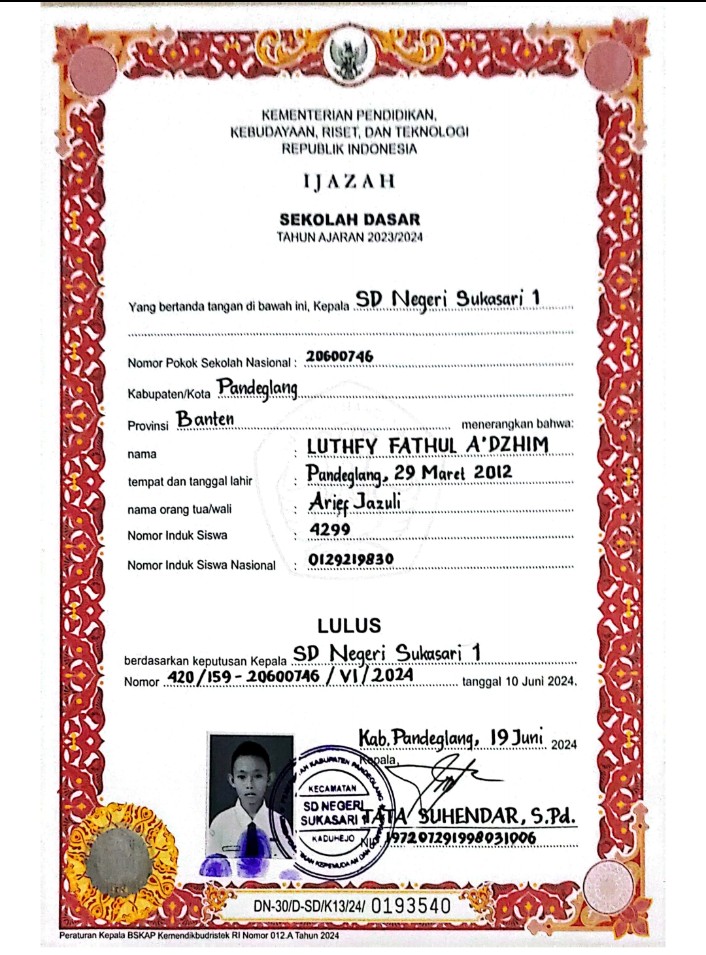 KEMENTERIAN PENDIDIKAN,
KEBUDAYAAN, RISET, DAN TEKNOLOGI
REPUBLIK INDONESIA
IJAZAH
SEKOLAH DASAR
TAHUN AJARAN 2023/2024
Yang bertanda tangan di bawah ini, Kepala SD Negeri Sukasari 1
Nomor Pokok Sekolah Nasional : 20600746
Kabupaten/Kota Pandeglang
Provinsi Banten menerangkan bahwa:
nama : LUTHFY FATHUL A'DZHIM
tempat dan tanggal lahir : Pandeglang, 29 Maret 2012
nama orang tua/wali : Arief Jazuli
Nomor Induk Siswa : 4299
Nomor Induk Siswa Nasional : 0129219830
LULUS
berdasarkan keputusan Kepala SD Negeri Sukasari 1
Nomor 420/159-20600746/VI/2024 tanggal 10 Juni 2024.
Kab. Pandeglang, 19 Juni 2024
Kepala,
KABUPATEN PANDEGLANG
KECAMATAN
SD NEGERI
SUKASARI 1
KADUHEJO
TATA SUHENDAR, S.Pd.
NIP. 197207291998031006
DN-30/D-SD/K13/24/ 0193540
Peraturan Kepala BSKAP Kemendikbudristek RI Nomor 012.A Tahun 2024